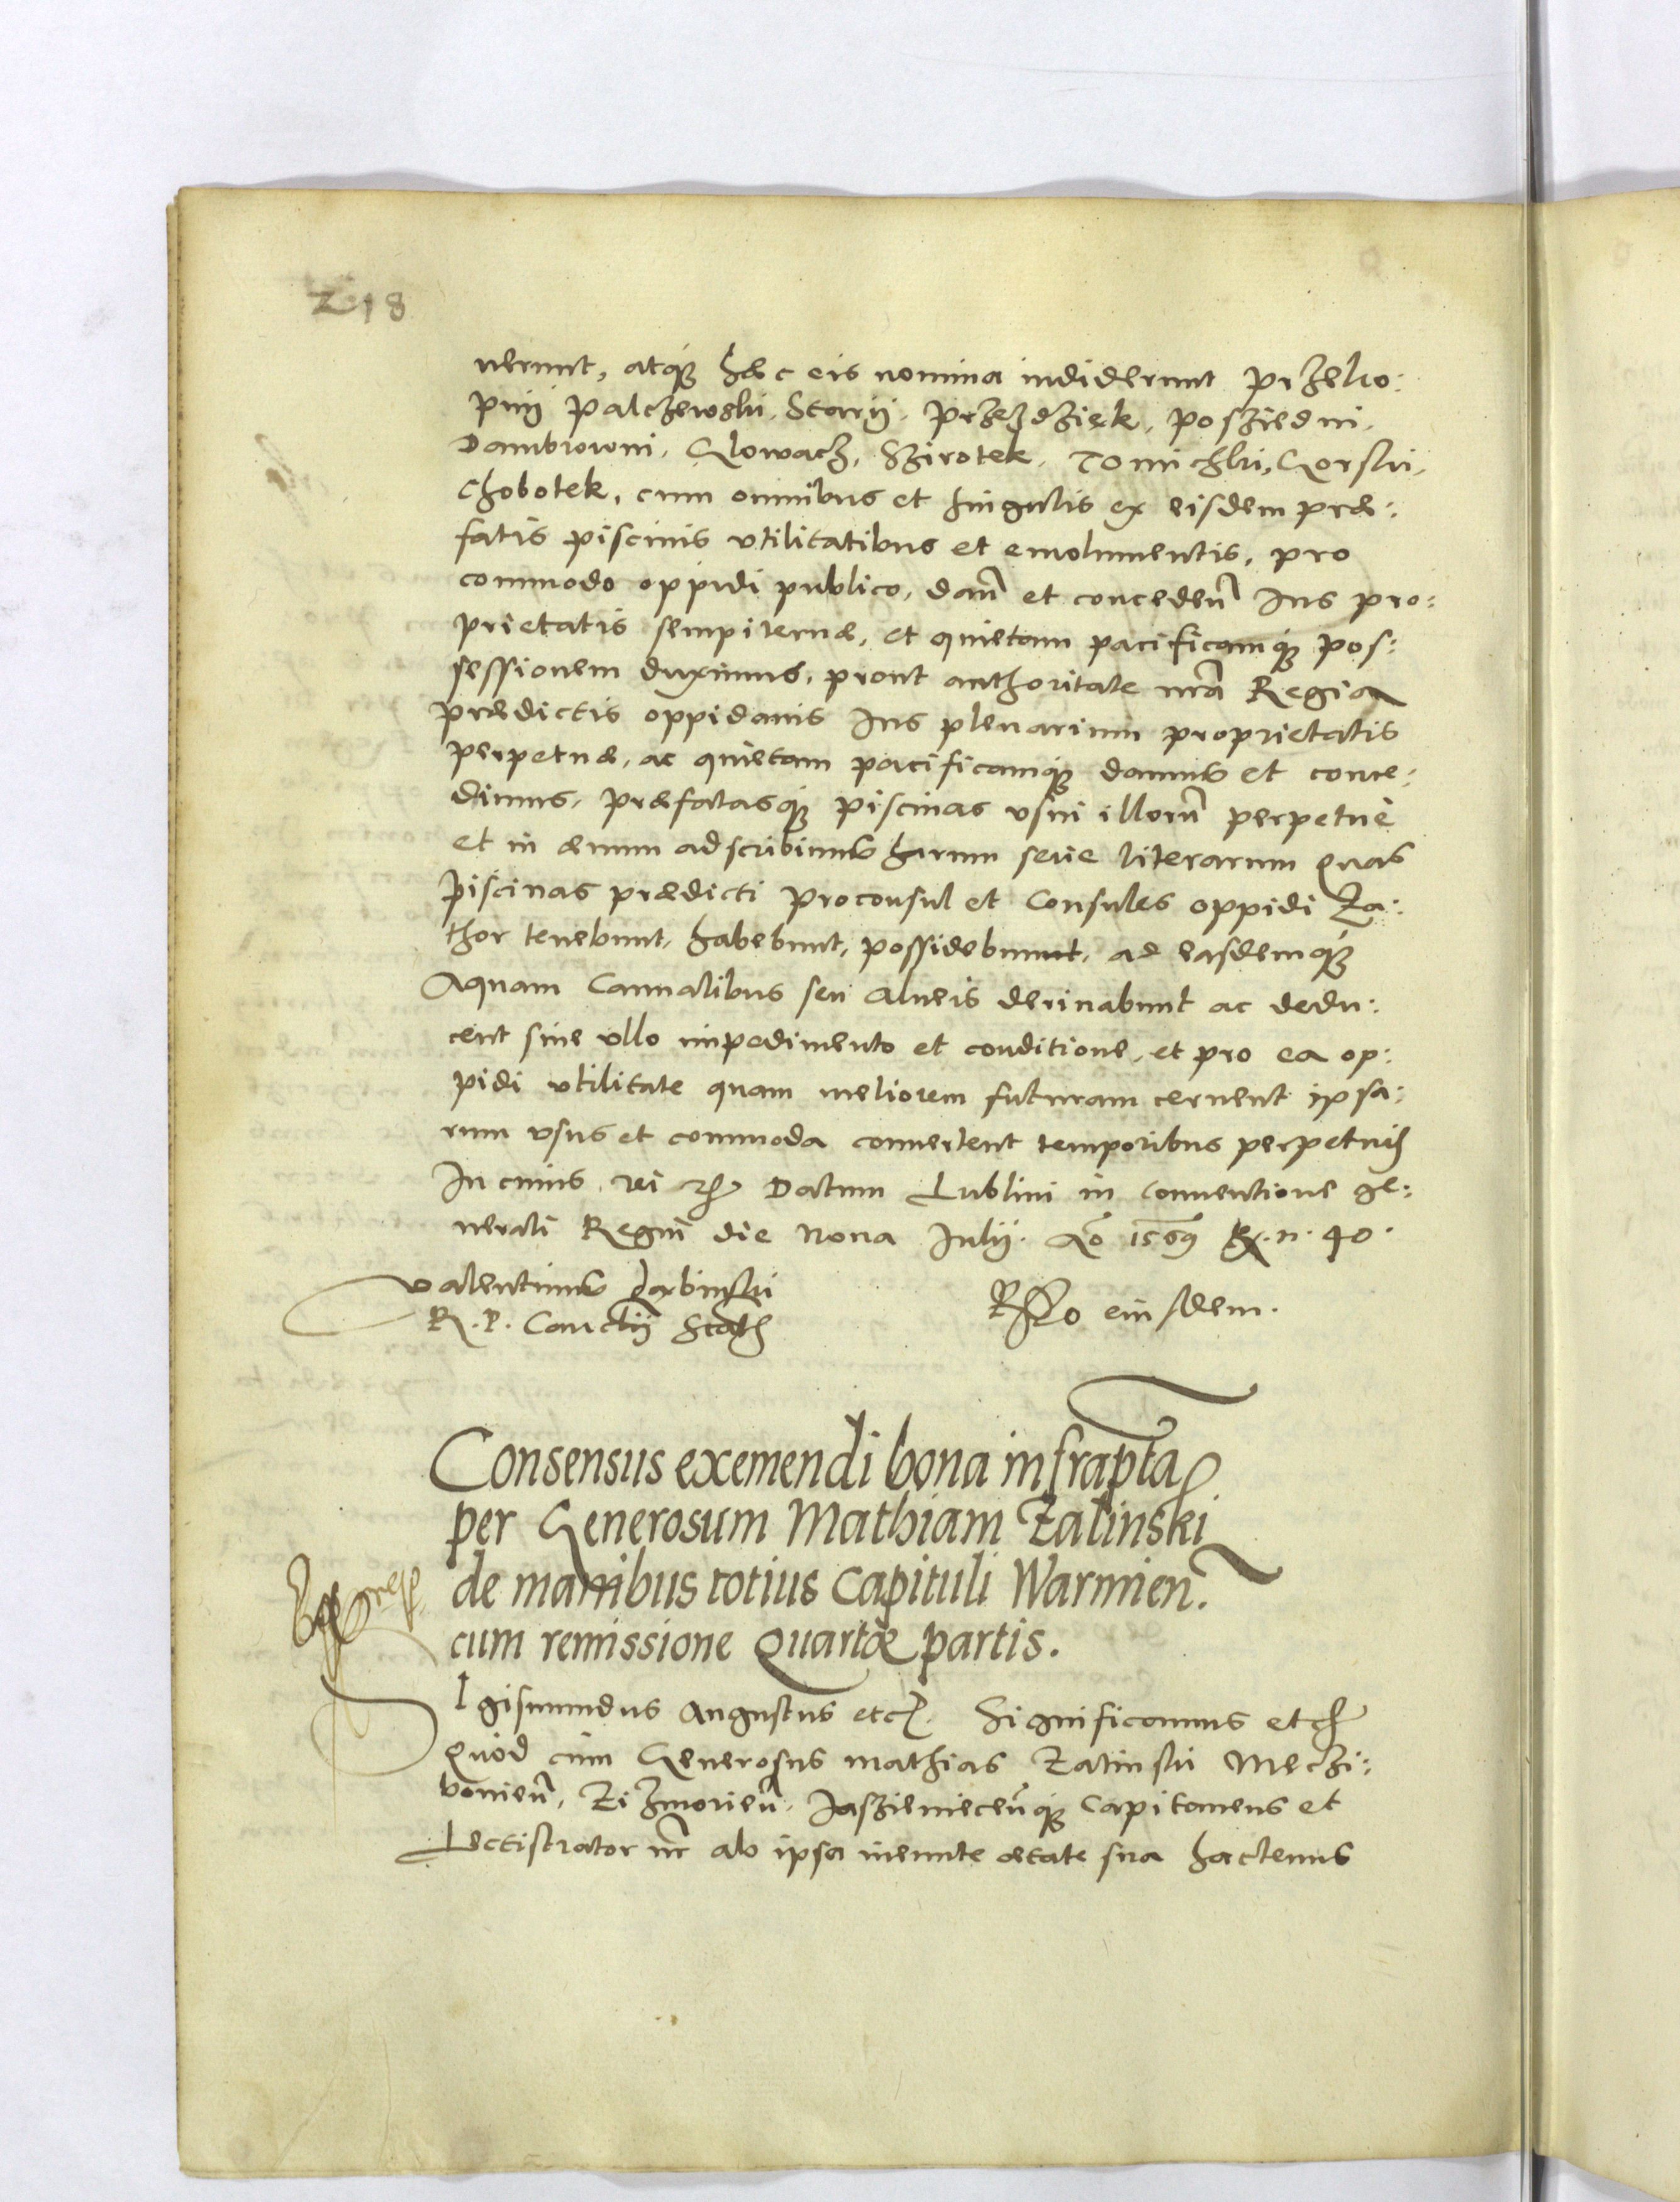 218
uerunt, atq₃ hæc eis nomina indiderunt Przeko:
pnÿ Palczewski, Starÿ, Przezdziek, Posziedni,
Dambrowni, Glowacz, Szirotek, Tomichki, Gorski,
Chobotek, cum omnibus et singulis ex eisdem præ:
fatis piscinis vtilitatibus et emolumentis, pro
commodo oppidi publico, dan̄ et conceden̄ Ius pro:
prietatis sempiternæ, et quietam pacificamq₃ pos:
sessionem duximus, prout authoritate nr̄a Regia
prædictis oppidanis Ius plenarium proprietatis
perpetuæ, ac quietam pacificamq₃ damus et conce:
dimus, præfatasq₃ piscinas vsui illorū perpetuè
et in æuum adscribimus harum serie literarum quas
piscinas prædicti Proconsul et Consules oppidi Za:
thor tenebunt, habebunt, possidebunt, ad easdemq₃
Aquam Cannalibus seu Alueis deriuabunt ac dedu:
cent sine vllo impedimento et conditione, et pro ea op:
pidi vtilitate quam meliorem futuram cernent ipsa:
rum vsus et commoda conuertent temporibus perpetuis
In cuius rei etc. Datum Lublini in Conuentione ge:
nerali Regni die Nona Julÿ. Ao 1569 R. n. 40.
Valentinus Dembinski
R. P. Cancell Sctpt
Rlo eiusdem.
Consensus exemendi bona infrapta
per Generosum Mathiam Zalinski
de manibus totius Capituli Warmien.
cum remissione Quartæ partis.
SIgismundus Augustus etc. Significamus etc
Quòd cùm Generosus Mathias Zalinski Meczi:
bonien̄, Zizmorien̄, Jaszieniecen̄q₃ Capitaneus et
Lectistrator nr̄ ab ipsa ineunte ætate sua hactenus